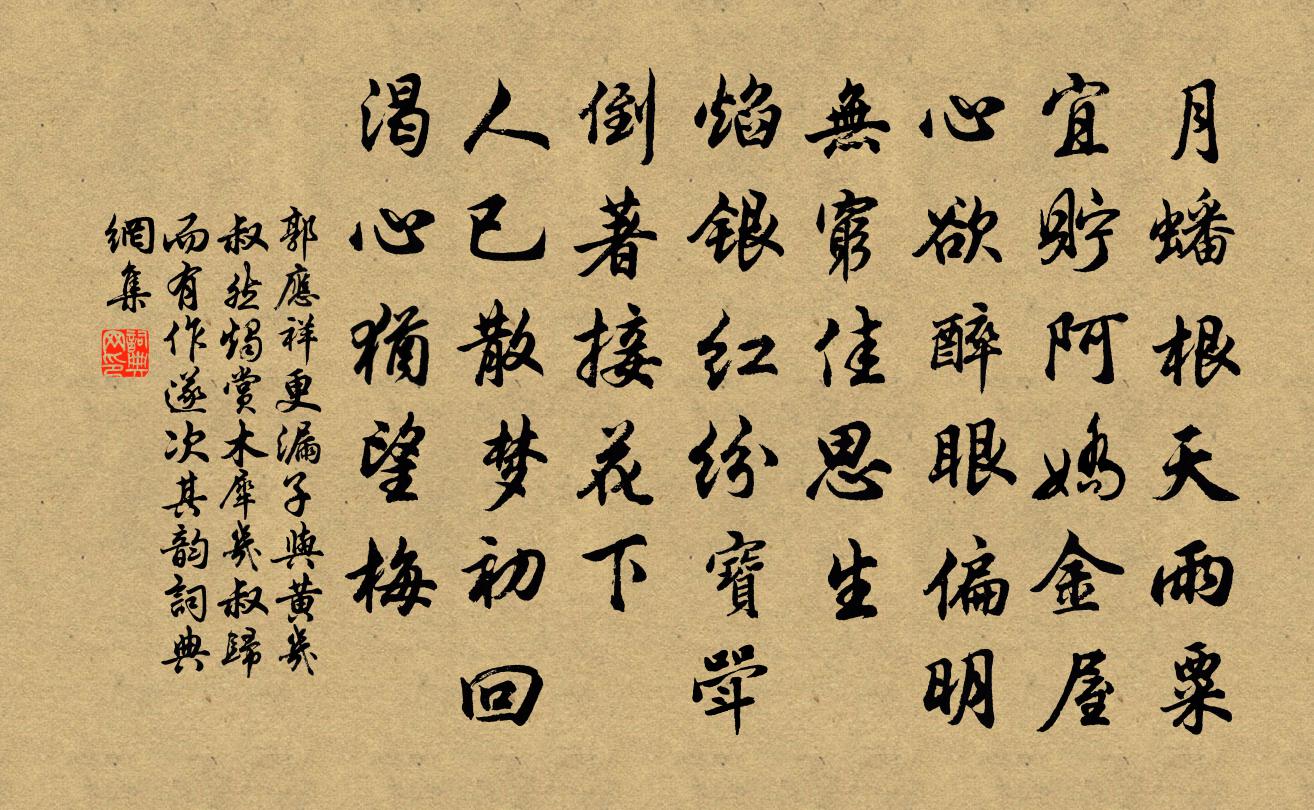 月蟠根天雨粟
宜貯阿嬌金屋
心欲醉眼偏明
無窮佳思生
焰銀红紛寶斝
倒著接花下
人已散梦初回
渴心猶望梅
郭應祥更漏子與黄幾
叔然燭賞木犀幾叔歸
而有作遂次其韵詞典
網集
詞典
网印